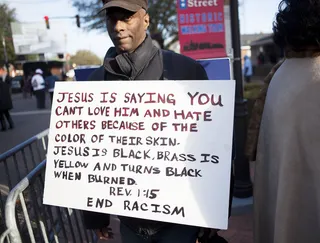 STREET
HISTORIC
JESUS IS SAYING YOU
CANT LOVE HIM AND HATE
OTHERS BECAUSE OF THE
COLOR OF THEIR SKIN.
JESUS IS BLACK, BRASS IS
YELLOW AND TURNS BLACK
WHEN BURNED.
REV. 1:15
END RACISM